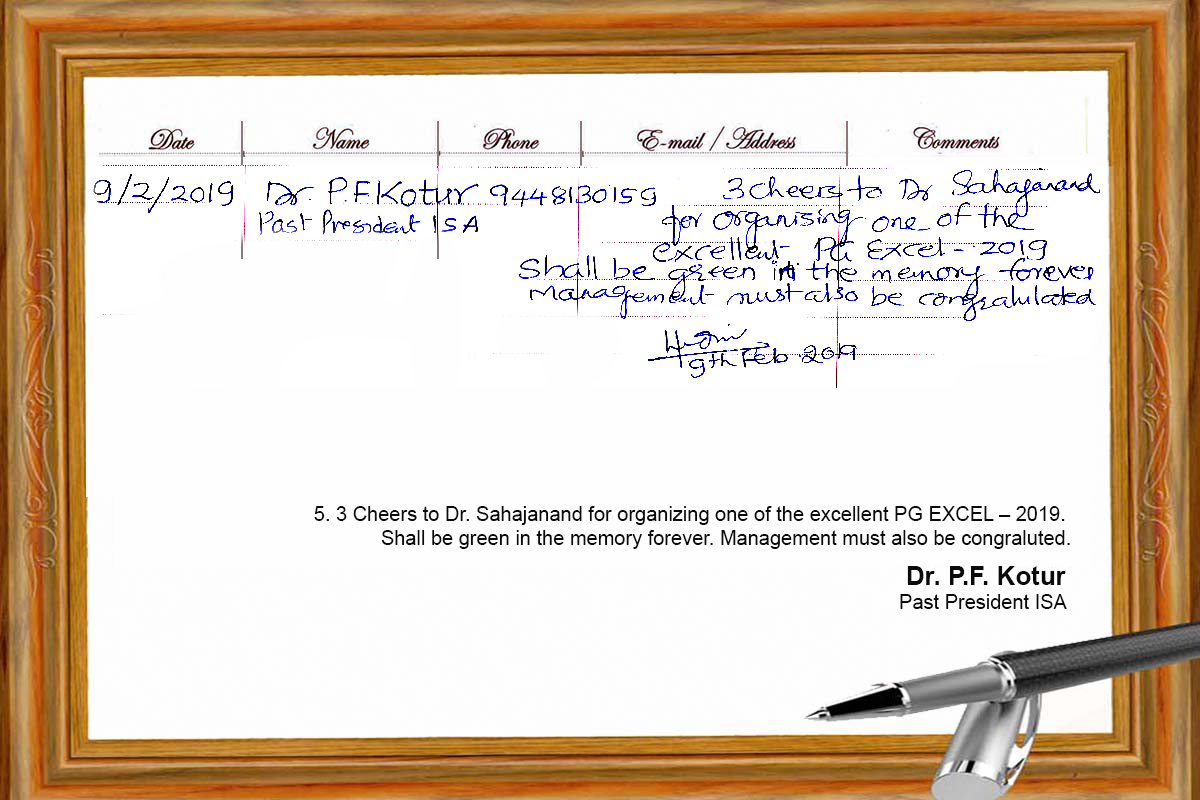 Date Name Phone E-mail / Address Comments
9/2/2019 Dr. P.F. Kotur 9448130159 3 cheers to Dr Sahajanand
Past President ISA for organising one of the
excellent PG Excel - 2019
Shall be green in the memory forever
Management must also be congralulated
9th Feb 2019
5. 3 Cheers to Dr. Sahajanand for organizing one of the excellent PG EXCEL – 2019.
Shall be green in the memory forever. Management must also be congraluted.
Dr. P.F. Kotur
Past President ISA